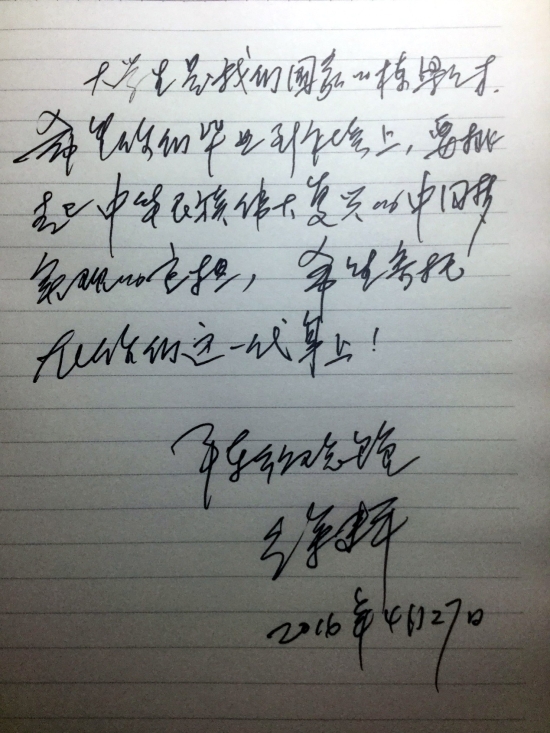 大学生是我们国家的栋梁之才.
希望你们毕业到社会上，要挑
起中华民族伟大复兴的中国梦
实现的重担，希望寄托
在你们这一代身上！
2016年4月27日